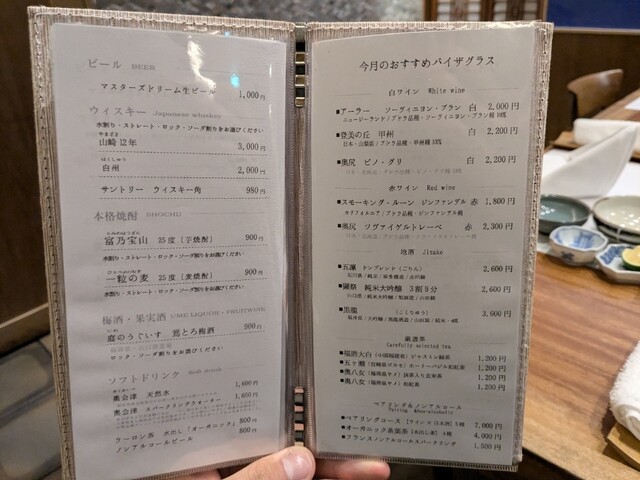 ビール BEER
マスターズドリーム生ビール 1,000円
ウィスキー Japanese whiskey
水割り・ストレート・ロック・ソーダ割りをお選びください
やまざき
山崎12年 3,000円
はくしゅう
白州 2,000円
サントリー ウィスキー角 980円
本格焼酎 SHOCHU
富乃宝山 25度 [芋焼酎] 900円
水割り・ストレート・ロック・ソーダ割りをお選びください
一粒の麦 25度 [麦焼酎] 900円
水割り・ストレート・ロック・ソーダ割りをお選びください
梅酒・果実酒 UME LIQUOR・FRUITWINE
庭のうぐいす 鶯とろ梅酒 900円
ロック・ソーダ割りをお選びください
ソフトドリンク Soft drink
奥会津 天然水 1,600円
奥会津 スパークリングウォーター 1,600円
ラーロン茶 水出し「オーガニック」 800円
ノンアルコールビール 800円
今月のおすすめバイザグラス
白ワイン White wine
■アーラー ソーヴィニヨン・ブラン 白 2,000円
ニュージーランド / ブドウ品種・ソーヴィニヨン・ブラン種 100%
■登美の丘 甲州 白 2,200円
日本・山梨県 / ブドウ品種・甲州種 100%
■奥尻 ピノ・グリ 白 2,200円
赤ワイン Red wine
■スモーキング・ルーン ジンファンデル 赤 1,800円
カリフォルニア / ブドウ品種・ジンファンデル種
■奥尻 ツヴァイゲルトレーベ 赤 2,300円
地酒 Jizake
■五凛 テンプレンド (ごりん) 2,600円
■獺祭 純米大吟醸 3割9分 2,600円
■黒龍 (こくりゅう) 3,600円
厳選茶
Carefully selected tea
■福鼎大白 (中国福建省) ジャスミン緑茶 1,200円
■五ヶ瀬 (宮崎県ゴカセ) ホーリーバジル和紅茶 1,200円
■奥八女 (福岡県ヤメ) 抹茶入り玄米茶 1,200円
■奥八女 (福岡県ヤメ) 和紅茶 1,200円
ペアリング&ノンアルコール
■ペアリングコース [ワイン×日本酒] 3種 2,000円
■オーガニック烏龍茶 (水出し茶) 4種 4,000円
■フランスノンアルコールスパークリング 1,500円